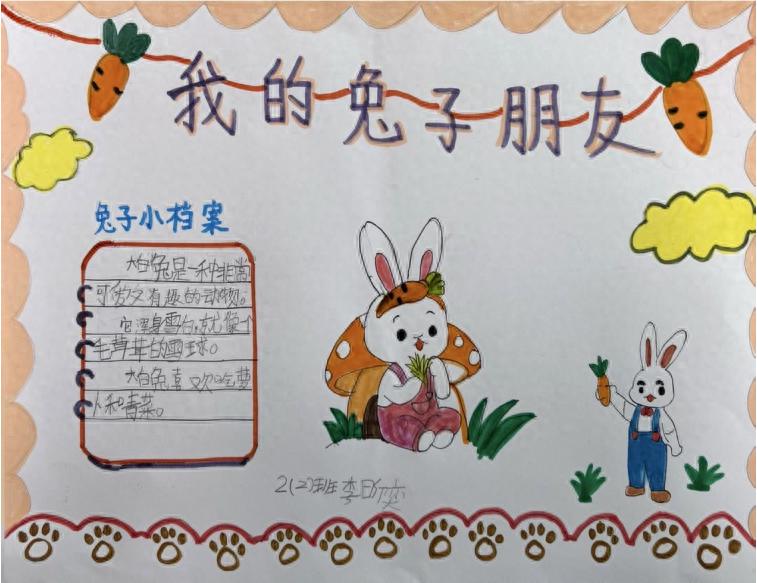 我的兔子朋友
兔子小档案
大白兔是一种非常
可爱又有趣的动物。
它浑身雪白,就像个
毛茸茸的雪球。
大白兔喜欢吃萝
卜和青菜。
2(2)班李昕奕